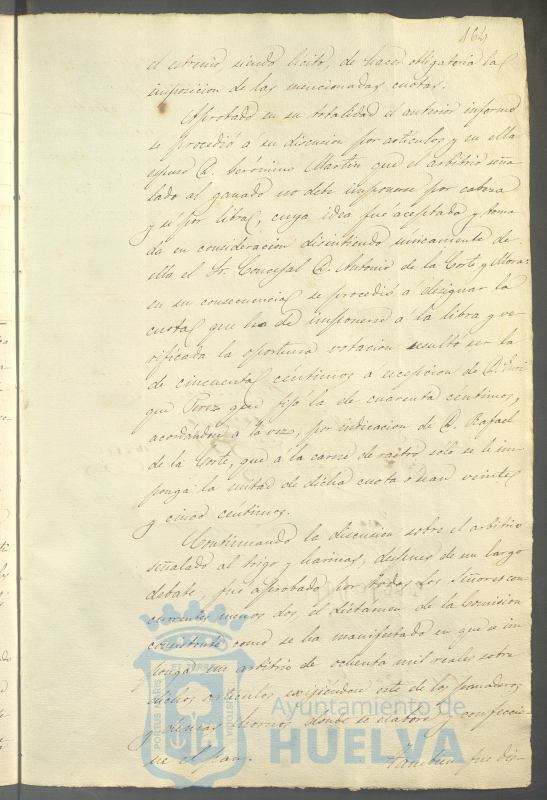 164
el estremo siendo licito, de hacer obligatoria la
imposicion de las mencionadas cuotas.
Aprobado en su totalidad el anterior informe
se procedió á su discusion por articulos y en ella
espuso D. Gerónimo Martin que el arbitrio seña
lado al ganado no debe imponerse por cabeza
y si por libra, cuya idea fué aceptada y toma
da en consideracion disintiendo únicamente de
ella el Sr. Concejal D. Antonio de la Corte y Mora:
en su consecuencia se procedió á designar la
cuota que ha de imponerse á la libra y ve
rificada la oportuna votacion resultó ser la
de cincuenta céntimos á escepcion de D. Enri
que Perez que fijó la de cuarenta céntimos,
acordándose á la vez, por indicacion de D. Rafael
de la Corte, que á la carne de rastro solo se le im
ponga la mitad de dicha cuota ó sean veinte
y cinco centimos.
Continuando la discusion sobre el arbitrio
señalado al trigo y harinas, despues de un largo
debate, fué aprobado por todos los Señores con
currentes menos dos, el dictamen de la Comision
consistente como se ha manifestado en que se im
ponga un arbitrio de ochenta mil reales sobre
dichos articulos exijiendose este de los panaderos
y demas hornos donde se elabore y confeccio
ne el pan.
Tambien fue dis-
PORTUS MARIS ET TERRAE CUSTODIA
Ayuntamiento de
HUELVA